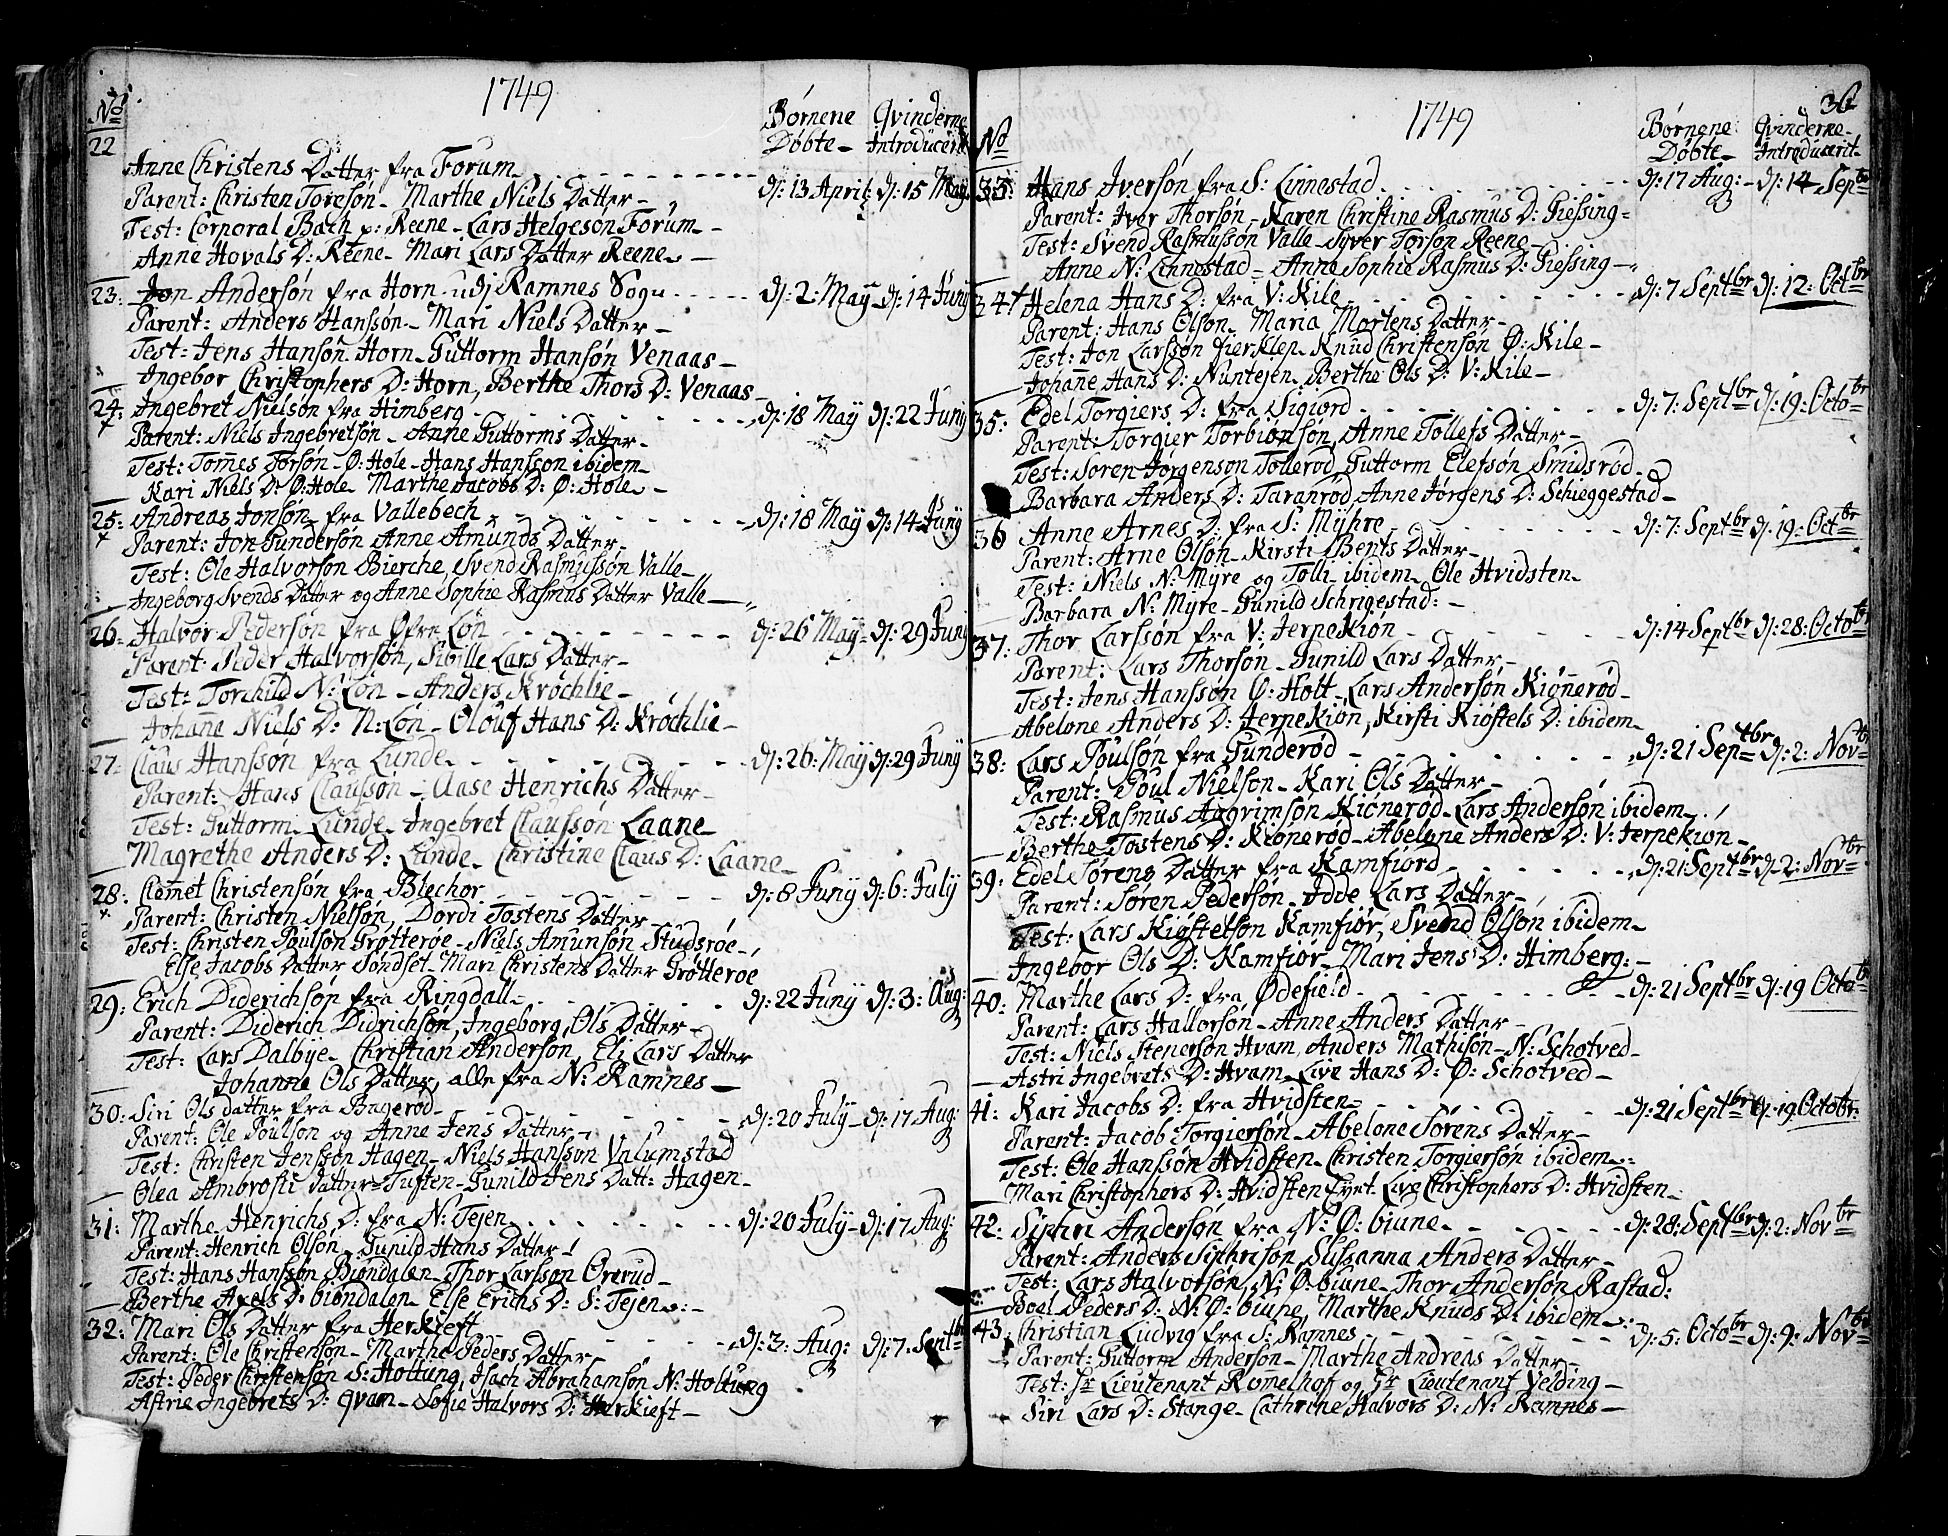 1749
No Børnene Døbte_ Qvinderne Introducerit
22 Anne Christens Datter fra Forum dj: 13 April: dj: 15 May
Parent: Christen Toresøn_ Marthe Niels Datter_
Test: Corporal Bach p: Reene_ Lars Helgesøn Forum_
Anne Hovals D: Reene_ Mari Lars Datter Reene_
23: Jon Andersøn fra Horn udj Ramnes Sogn dj: 2: May_ dj: 14 Junj
Parent: Anders Hanssøn_ Mari Niels Datter_
Test: Jens Hansøn Horn_ Guttorm Hansøn Venaas_
Ingebor Christophers D: Horn, Berthe Thors D: Venaas_
24: Ingebret Nielsøn fra Himberg dj: 18 May dj: 22 Junj
Parent: Niels Ingebretsøn_ Anne Guttorms Datter_
Test: Tom̄es Torsøn_ Ø: Hole_ Hans Hanssøn ibidem_
Kari Niels D: Ø: Hole_ Marthe Jacobs D: Ø: Hole_
25: Andreas Jonsøn fra Vallebech dj: 18 May dj: 14 Junj
Parent: Jon Gundersøn Anne Amunds Datter_
Test: Ole Halvorsøn Bierche, Svend Rasmussøn Valle_
Ingeborg Svends Datter og Anne Sophie Rasmus Datter Valle_
26: Halvor Pedersøn fra Øfre Løn dj: 26 May_ dj: 29 Junj
Parent: Peder Halvorsøn, Sibille Lars Datter_
Test: Torchild N: Løn_ Anders Krøchlie_
Johan̄e Niels D: N: Løn_ Olouf Hans D: Krøchlie_
27: Claus Hanssøn fra Lunde dj: 26: May dj: 29 Junj
Parent: Hans Claussøn_ Aase Henrichs Datter_
Test: Guttorm_ Lunde_ Ingebret Claussøn Laane_
Magrethe Anders D: Lunde_ Christine Claus D: Laane_
28: Clem̄et Christensøn fra Blechor dj: 8 Junj dj: 6: July
Parent: Christen Nielsøn, Dordi Tostens Datter_
Test: Christen Poulsøn Grøtterøe_ Niels Amunsøn Studsrøe_
Else Jacobs Datter Søndset_ Mari Christens Datter Grøtterøe
29: Erich Diderichsøn fra Ringdall_ dj: 22 Junj dj: 3: Aug:
Parent: Diderich Didrichsøn, Ingeborg Ols Datter_
Test: Lars Dalbye_ Christian Andersøn, Eli Lars Datter
Johanne Ols Datter, alle fra N: Ramnes_
30: Siri Ols datter fra Bagerød_ dj: 20 July_ dj: 17 Aug:
Parent: Ole Poulsøn og Anne Jens Datter_
Test: Christen Jenssøn Hagen_ Niels Hanssøn Valumstad
Olea Ambrosii datter Tuften_ Gunild Jens Datt: Hagen_
31: Marthe Henrichs D: fra N: Tejen dj: 20 July_ dj: 17 Aug:
Parent: Henrich Olsøn_ Gunild Hans Datter_
Test: Hans Hanssøn Biøndalen_ Thor Larssøn Ørerud_
Berthe Axels D: biøndalen_ Else Erichs D: S: Tejen_
32: Mari Ols Datter fra Herkleft dj: 3: Aug: dj: 7: Septbr
Parent: Ole Christensøn_ Marthe Peders Datter_
Test: Peder Christensøn S: Holtung, Isach Abrahamsøn N: Holtung
Astrie Ingebrets D: qvam_ Sofie Halvors D: Herkleft_
1749 36
No Børnene Døbte_ Qvinderne Introducerit_
33: Hans Iversøn fra S: Linnestad dj: 17 Aug:_ dj: 14 Septbr
Parent: Iver Thorsøn_ Karen Christine Rasmus D: Giessing_
Test: Svend Rasmussøn Valle_ Syver Torsøn Reene_
Anne N: Linnestad_ Anne Sophie Rasmus D: Giessing_
34 Helena Hans D: fra V: Kile dj: 7 Septbr dj: 12: Octbr
Parent: Hans Olsøn_ Maria Mortens Datter_
Test: Jon Larssøn Fierklep_ Knud Christensøn Ø: Kile_
Johan̄e Hans D: Nuntejen_ Berthe Ols D: V: Kile_
35: Edel Torgiers D: fra Sigiord dj: 7: Septbr dj: 19: Octobr
Parent: Torgier Torbiønsøn, Anne Tollefs Datter_
Test: Søren Jørgensøn Tollerød, Guttorm Elefsøn Smidsrød_
Barbara Anders D: Taranrød, Anne Jørgens D: Schieggestad_
36 Anne Arnes D: fra S: Myhre dj: 7: Septbr dj: 19: Octbr
Parent: Arne Olsøn_ Kirsti Bents Datter_
Test: Niels N: Myre og Tolli ibidem_ Ole Hvidsten_
Barbara N: Myre_ Gunild Schrigestad:_
37: Thor Larssøn fra V: Jernekiøn dj: 14 Septbr dj: 28: Octobr
Parent: Lars Thorsøn_ Gunild Lars Datter_
Test: Jens Hanssøn Ø: Holt_ Lars Andersøn Kiøn̄erød_
Abelone Anders D: Jernekiøn, Kirsti Kiøstels D: ibidem_
38: Lars Poulsøn fra Gunderød dj: 21 Septbr dj: 2: Novbr
Parent: Poul Nielsøn_ Kari Ols Datter_
Test: Rasmus Aagrimsøn Kiønerød_ Lars Andersøn ibidem_
Berthe Tostens D: Kiønerød_ Abelone Anders D: V: Jernekiøn_
39: Edel Sørens Datter fra Kamfiord dj: 21: Septbr dj: 2: Novbr
Parent: Søren Pedersøn_ Idde Lars Datter_
Test: Lars Kiøstelsøn Kamfiør, Svend Olsøn ibidem_
Ingebor Ols D: Kamfiør_ Mari Jens D: Himberg:_
40: Marthe Lars D: fra Ødefield dj: 21 Septbr dj: 19 Octobr
Parent: Lars Hallorsøn_ Anne Anders Datter_
Test: Niels Stenersøn Hvam, Anders Mathisøn_ N: Schotved_
Astri Ingebrets D: Hvam_ Live Hans D: Ø: Schotved_
41: Kari Jacobs D: fra Hvidsten dj: 21 Septbr dj: 19 Octobr:
Parent: Jacob Torgiersøn_ Abelone Sørens Datter_
Test: Ole Hanssøn Hvidsten_ Christen Torgiersøn ibidem_
Mari Christophers D: Hvidsten Eyet_ Live Christophers D: Hvidsten_
42: Siphri Andersøn fra N: Ø: biune dj: 28: Septbr dj: 2: Novbr
Parent: Anders Siphrisøn Sussanna Anders Datter_
Test: Lars Halvorsøn, N: Ø: biune_ Thor Andersøn Rastad:
Boel Peders D: N: Ø: biune, Marthe Knuds D: ibidem_
43: Christian Ludvig fra S: Ramnes dj: 5: Octobr dj: 9: Novbr
Parent: Guttorm Andersøn_ Marthe Andreas Datter_
Test: Hr Lieutenant Romelhof og Hr Lieutenant Yelding_
Siri Lars D: Stange_ Cathrine Halvors D: N: Ramnes_